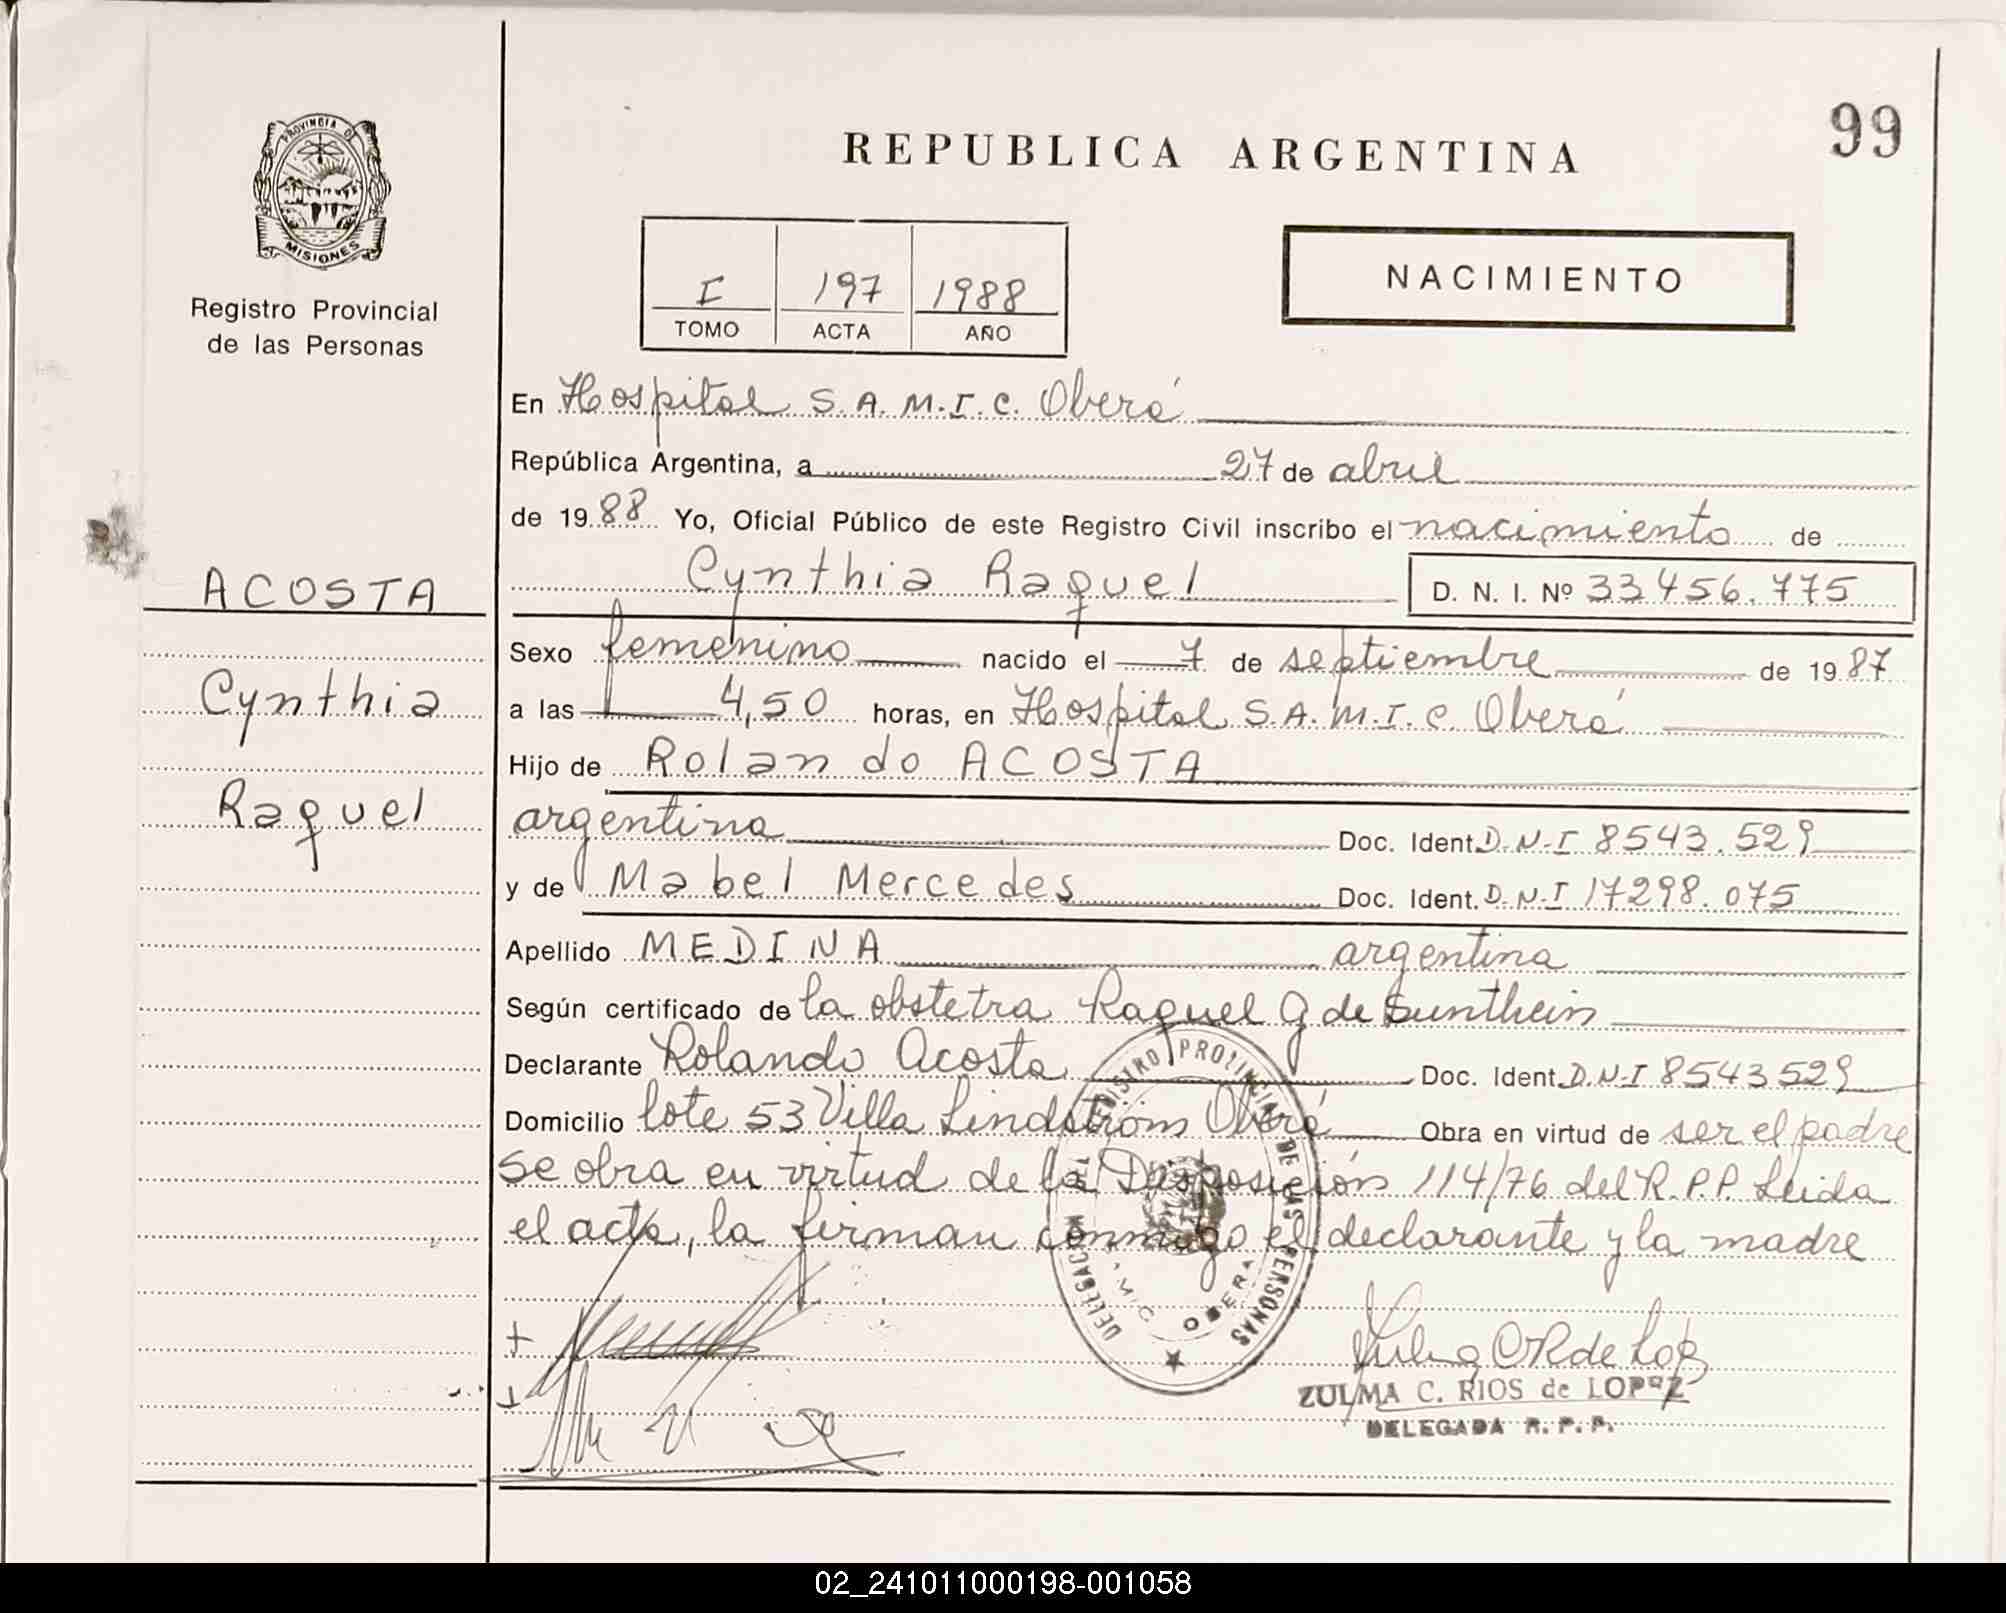 99
PROVINCIA DE
MISIONES
Registro Provincial
de las Personas
REPUBLICA ARGENTINA
I 197 1988
TOMO ACTA AÑO
NACIMIENTO
En Hospital S.A.M.I.C. Oberá
República Argentina, a 27 de abril
de 1988 Yo, Oficial Público de este Registro Civil inscribo el nacimiento de
Cynthia Raquel D. N. I. Nº 33456.775
ACOSTA
Cynthia
Raquel
Sexo femenino nacido el 7 de septiembre de 1987
a las 4,50 horas, en Hospital S.A.M.I.C. Oberá
Hijo de Rolando ACOSTA
argentina Doc. Ident. D-N-I 8543.529
y de Mabel Mercedes Doc. Ident. D-N-I 17298.075
Apellido MEDINA argentina
Según certificado de la obstetra Raquel G de Sunthein
Declarante Rolando Acosta Doc. Ident. D.N-I 8543529
Domicilio lote 53 Villa Lindström Oberá Obra en virtud de ser el padre
se obra en virtud de la Disposición 114/76 del R.P.P. Leida
el acta, la firman conmigo el declarante y la madre
REGISTRO PROVINCIAL DE LAS PERSONAS
OBERA
ZULMA C. RIOS de LOPEZ
DELEGADA R. P. P.
02_241011000198-001058